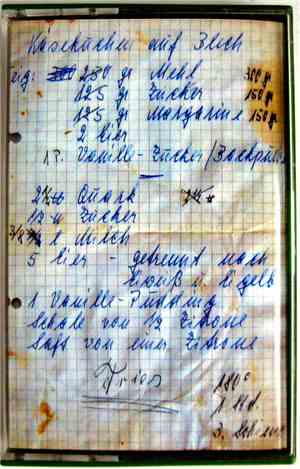 Käsekuchen auf Blech
250 gr Mehl 300 gr
125 gr Zucker 150 gr
125 gr Margarine 150 gr
2 Eier
1 P. Vanille-Zucker / Backpulver
2 Quark
Zucker
3/8 l Milch
5 Eier - getrennt nach
Eiweiß u. Eigelb
1 Vanille-Pudding
Schale von 1/2 Zitrone
Saft von einer Zitrone
180°
1 Std.
3. Schiene